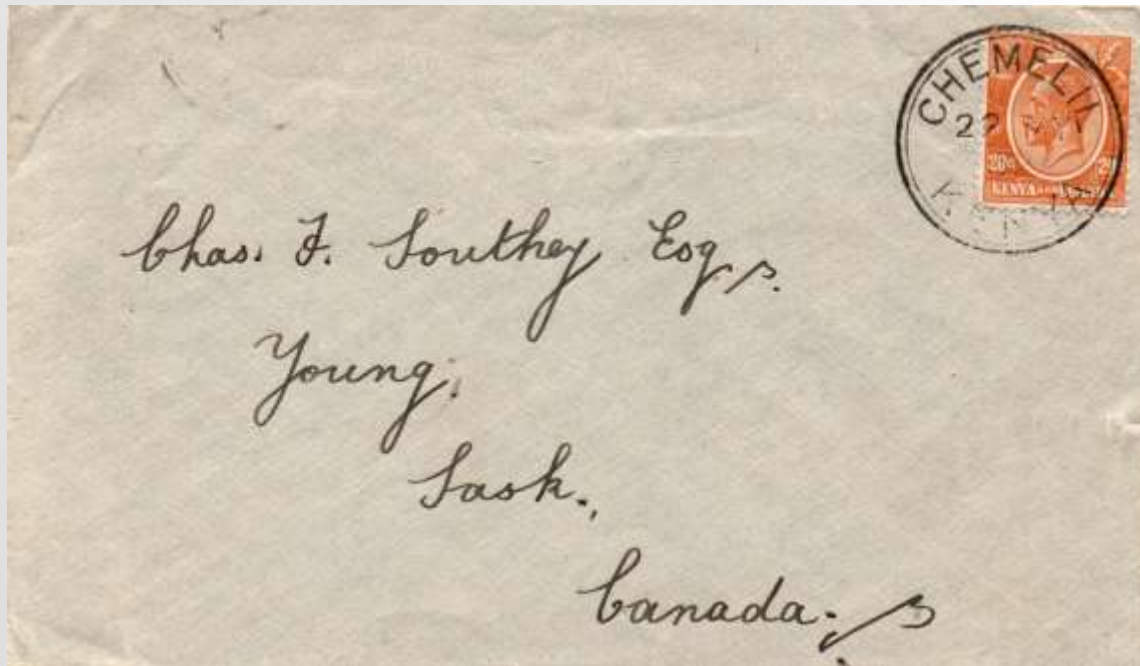 CHEMELIL
22 MY
KENYA
20c
KENYA
Chas. F. Southey Esq.
Young.
Sask.,
Canada.